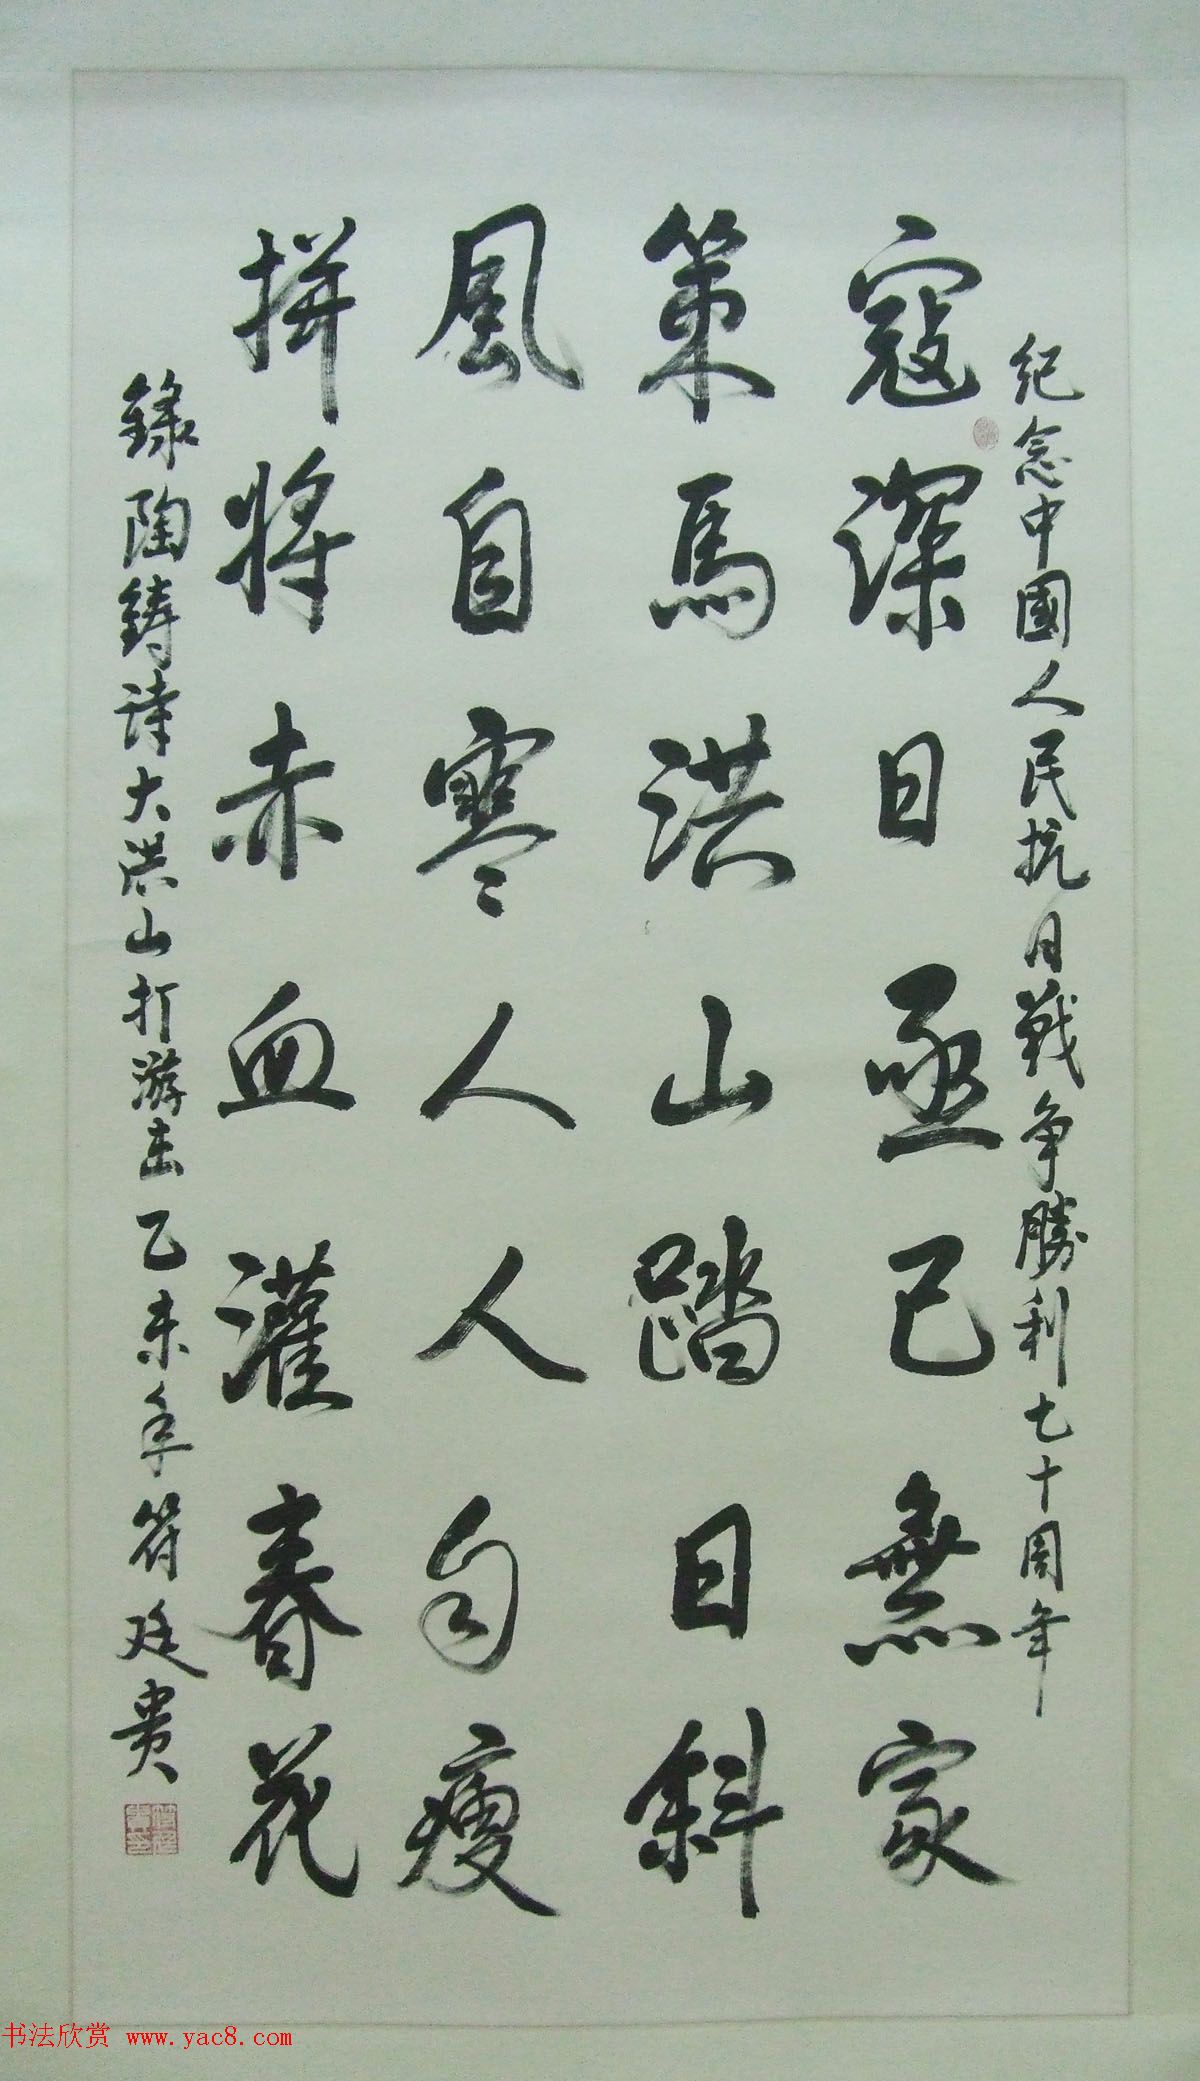 紀念中國人民抗日戰争勝利七十周年
寇深日亟已無家
策馬洪山踏日斜
風自寒人人自瘦
拼將赤血灌春花
錄陶鑄詩大洪山打游击乙未年符廷贵
书法欣赏 www.yac8.com